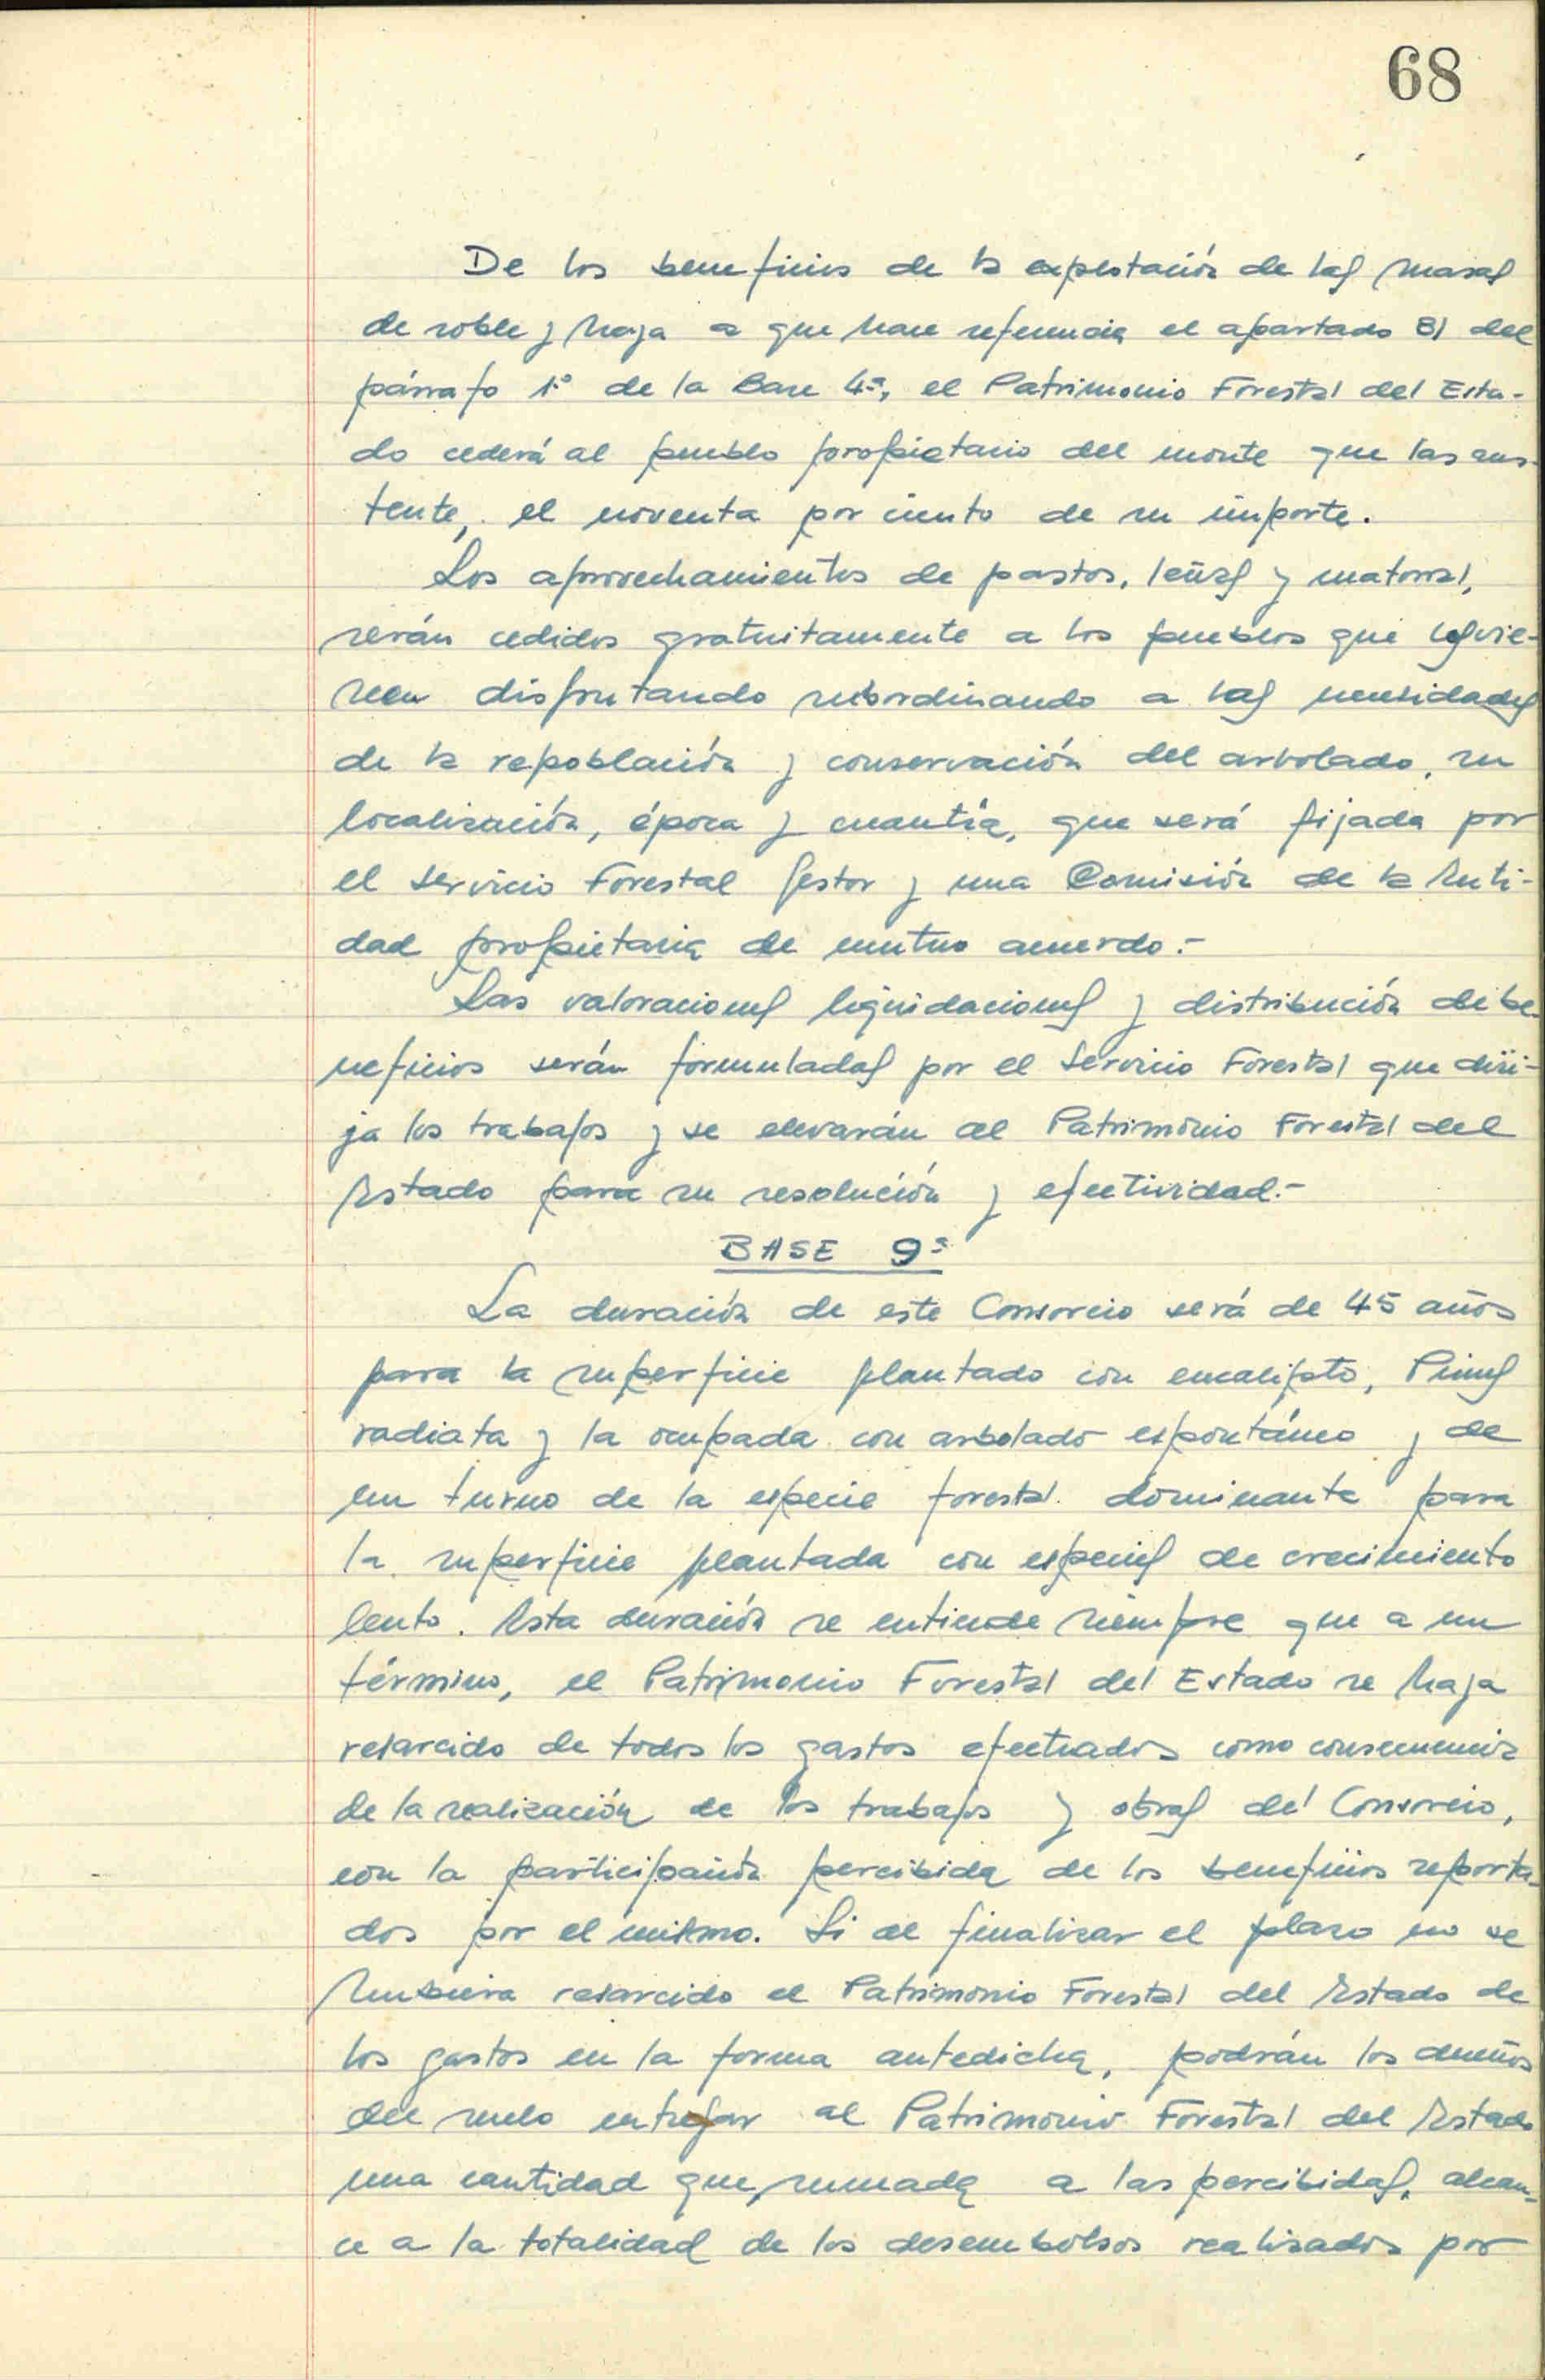 68
De los beneficios de la expotación de las masas
de roble y haya a que hace referencia el apartado B) del
párrafo 1º de la Base 4ª, el Patrimonio Forestal del Esta-
do cederá al pueblo propietario del monte que las sus-
tente, el noventa por ciento de su importe.
Los aprovechamientos de pastos, leñas y matorral,
serán cedidos gratuitamente a los pueblos que los vie-
nen disfrutando subordinando a las necesidades
de la repoblación y conservación del arbolado, su
localización, época y cuantía, que será fijada por
el Servicio Forestal Gestor y una Comisión de la Enti-
dad propietaria de mutuo acuerdo.-
Las valoraciones liquidaciones y distribución de be-
neficios serán formuladas por el Servicio Forestal que diri-
ja los trabajos y se elevarán al Patrimonio Forestal del
Estado para su resolución y efectividad.-
BASE 9ª
La duración de este Consorcio será de 45 años
para la superficie plantado con eucalipto, Pinus
radiata y la ocupada con arbolado espontáneo y de
un turno de la especie forestal dominante para
la superficie plantada con especies de crecimiento
lento. Esta duración se entiende siempre que a su
término, el Patrimonio Forestal del Estado se haya
resarcido de todos los gastos efectuados como consecuencia
de la realización de los trabajos y obras del Consorcio,
con la participación percibida de los beneficios reporta-
dos por el mismo. Si al finalizar el plazo no se
hubiera resarcido el Patrimonio Forestal del Estado de
los gastos en la forma antedicha, podrán los dueños
del suelo entregar al Patrimonio Forestal del Estado
una cantidad que, sumada a las percibidas, alcan-
ce a la totalidad de los desembolsos realizados por